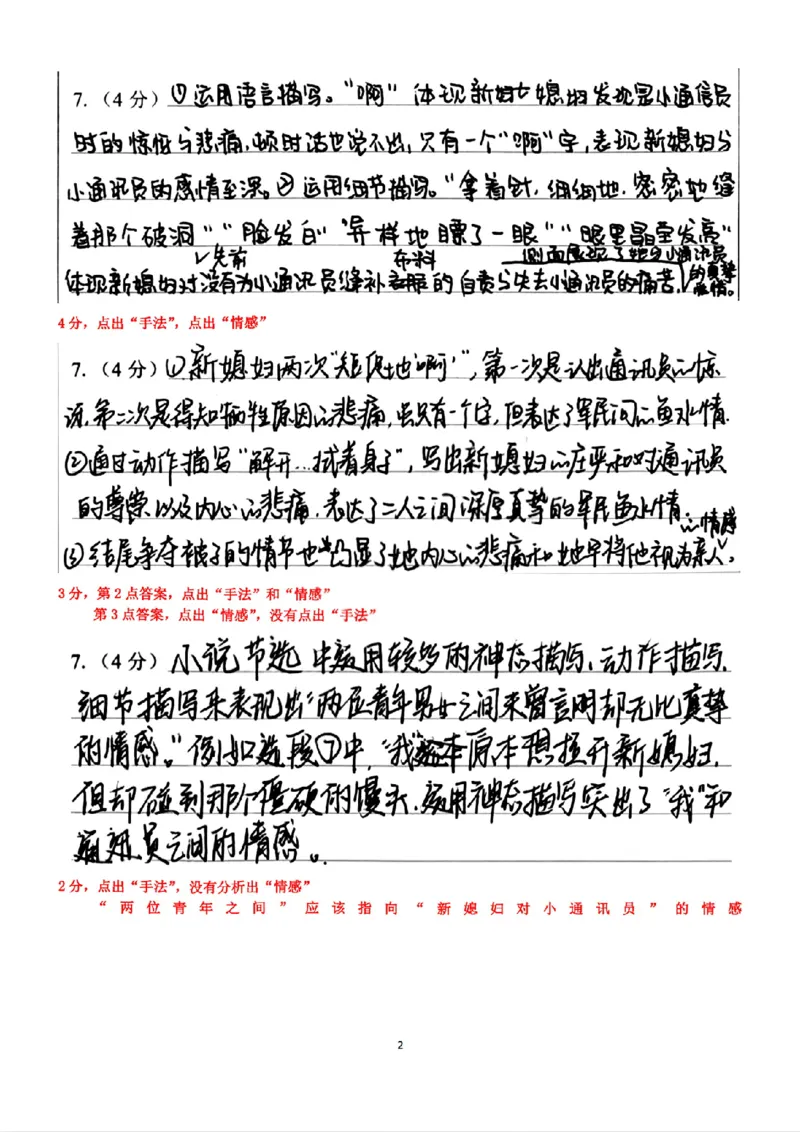 7.（4分）①运用语言描写。“啊”体现新妇女媳妇发现是小通信员
时的惊慌与悲痛,顿时话也说不出,只有一个“啊”字,表现新媳妇与
小通讯员的感情至深。②运用细节描写。“拿着针,细细地.密密地缝
着那个破洞”“脸发白”“异样地瞟了一眼”“眼里晶莹发亮”
先前 布料 侧面展现了她与小通讯员
体现新媳妇对没有为小通讯员缝补的自责与失去小通讯员的痛苦.
的真挚
感情。
4分，点出“手法”，点出“情感”
7.（4分）①新媳妇两次“短促地‘啊’”,第一次是认出通讯员的惊
讶,第二次是得知牺牲原因的悲痛,虽只有一个字,但表达了军民间的鱼水情.
②通过动作描写“解开…拭着身子”,写出新媳妇的庄严和对通讯员
的尊崇以及内心的悲痛.表达了二人之间深厚真挚的军民鱼水情.
的情感
③结尾争夺被子的情节也凸显了她内心的悲痛和她早将他视为亲人.
3分，第2点答案，点出“手法”和“情感”
第3点答案，点出“情感”，没有点出“手法”
7.（4分）小说节选中运用较多的神态描写、动作描写.
细节描写来表现出“两位青年男女之间未曾言明却无比真挚
的情感。”例如选段⑦中,“我”原本想推开新媳妇.
但却碰到那个僵硬的馒头.运用神态描写突出了“我”和
通讯员之间的情感。
2分，点出“手法”，没有分析出“情感”
“两位青年之间”应该指向“新媳妇对小通讯员”的情感
2